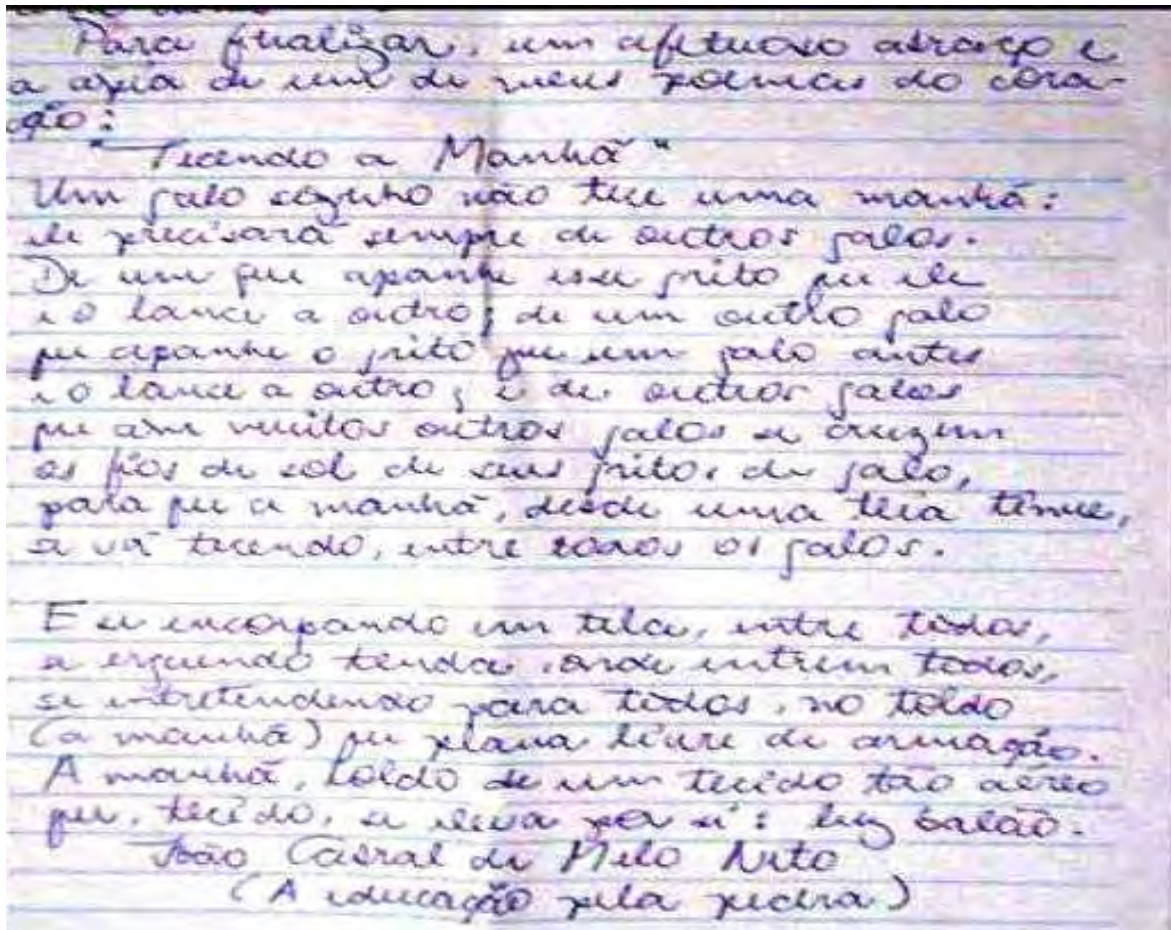 Para finalizar, um afetuoso abraço e
a cópia de um de meus poemas do cora-
ção:
"Tecendo a Manhã"
Um galo sozinho não tece uma manhã:
ele precisará sempre de outros galos.
De um que apanhe esse grito que ele
e o lance a outro; de um outro galo
que apanhe o grito que um galo antes
e o lance a outro; e de outros galos
que com muitos outros galos se cruzem
os fios de sol de seus gritos de galo,
para que a manhã, desde uma teia tênue,
se vá tecendo, entre todos os galos.
E se encorpando em tela, entre todos,
se erguendo tenda, onde entrem todos,
se entretendendo para todos, no toldo
(a manhã) que plana livre de armação.
A manhã, toldo de um tecido tão aéreo
que, tecido, se eleva por si: luz balão.
João Cabral de Melo Neto
(A educação pela pedra)